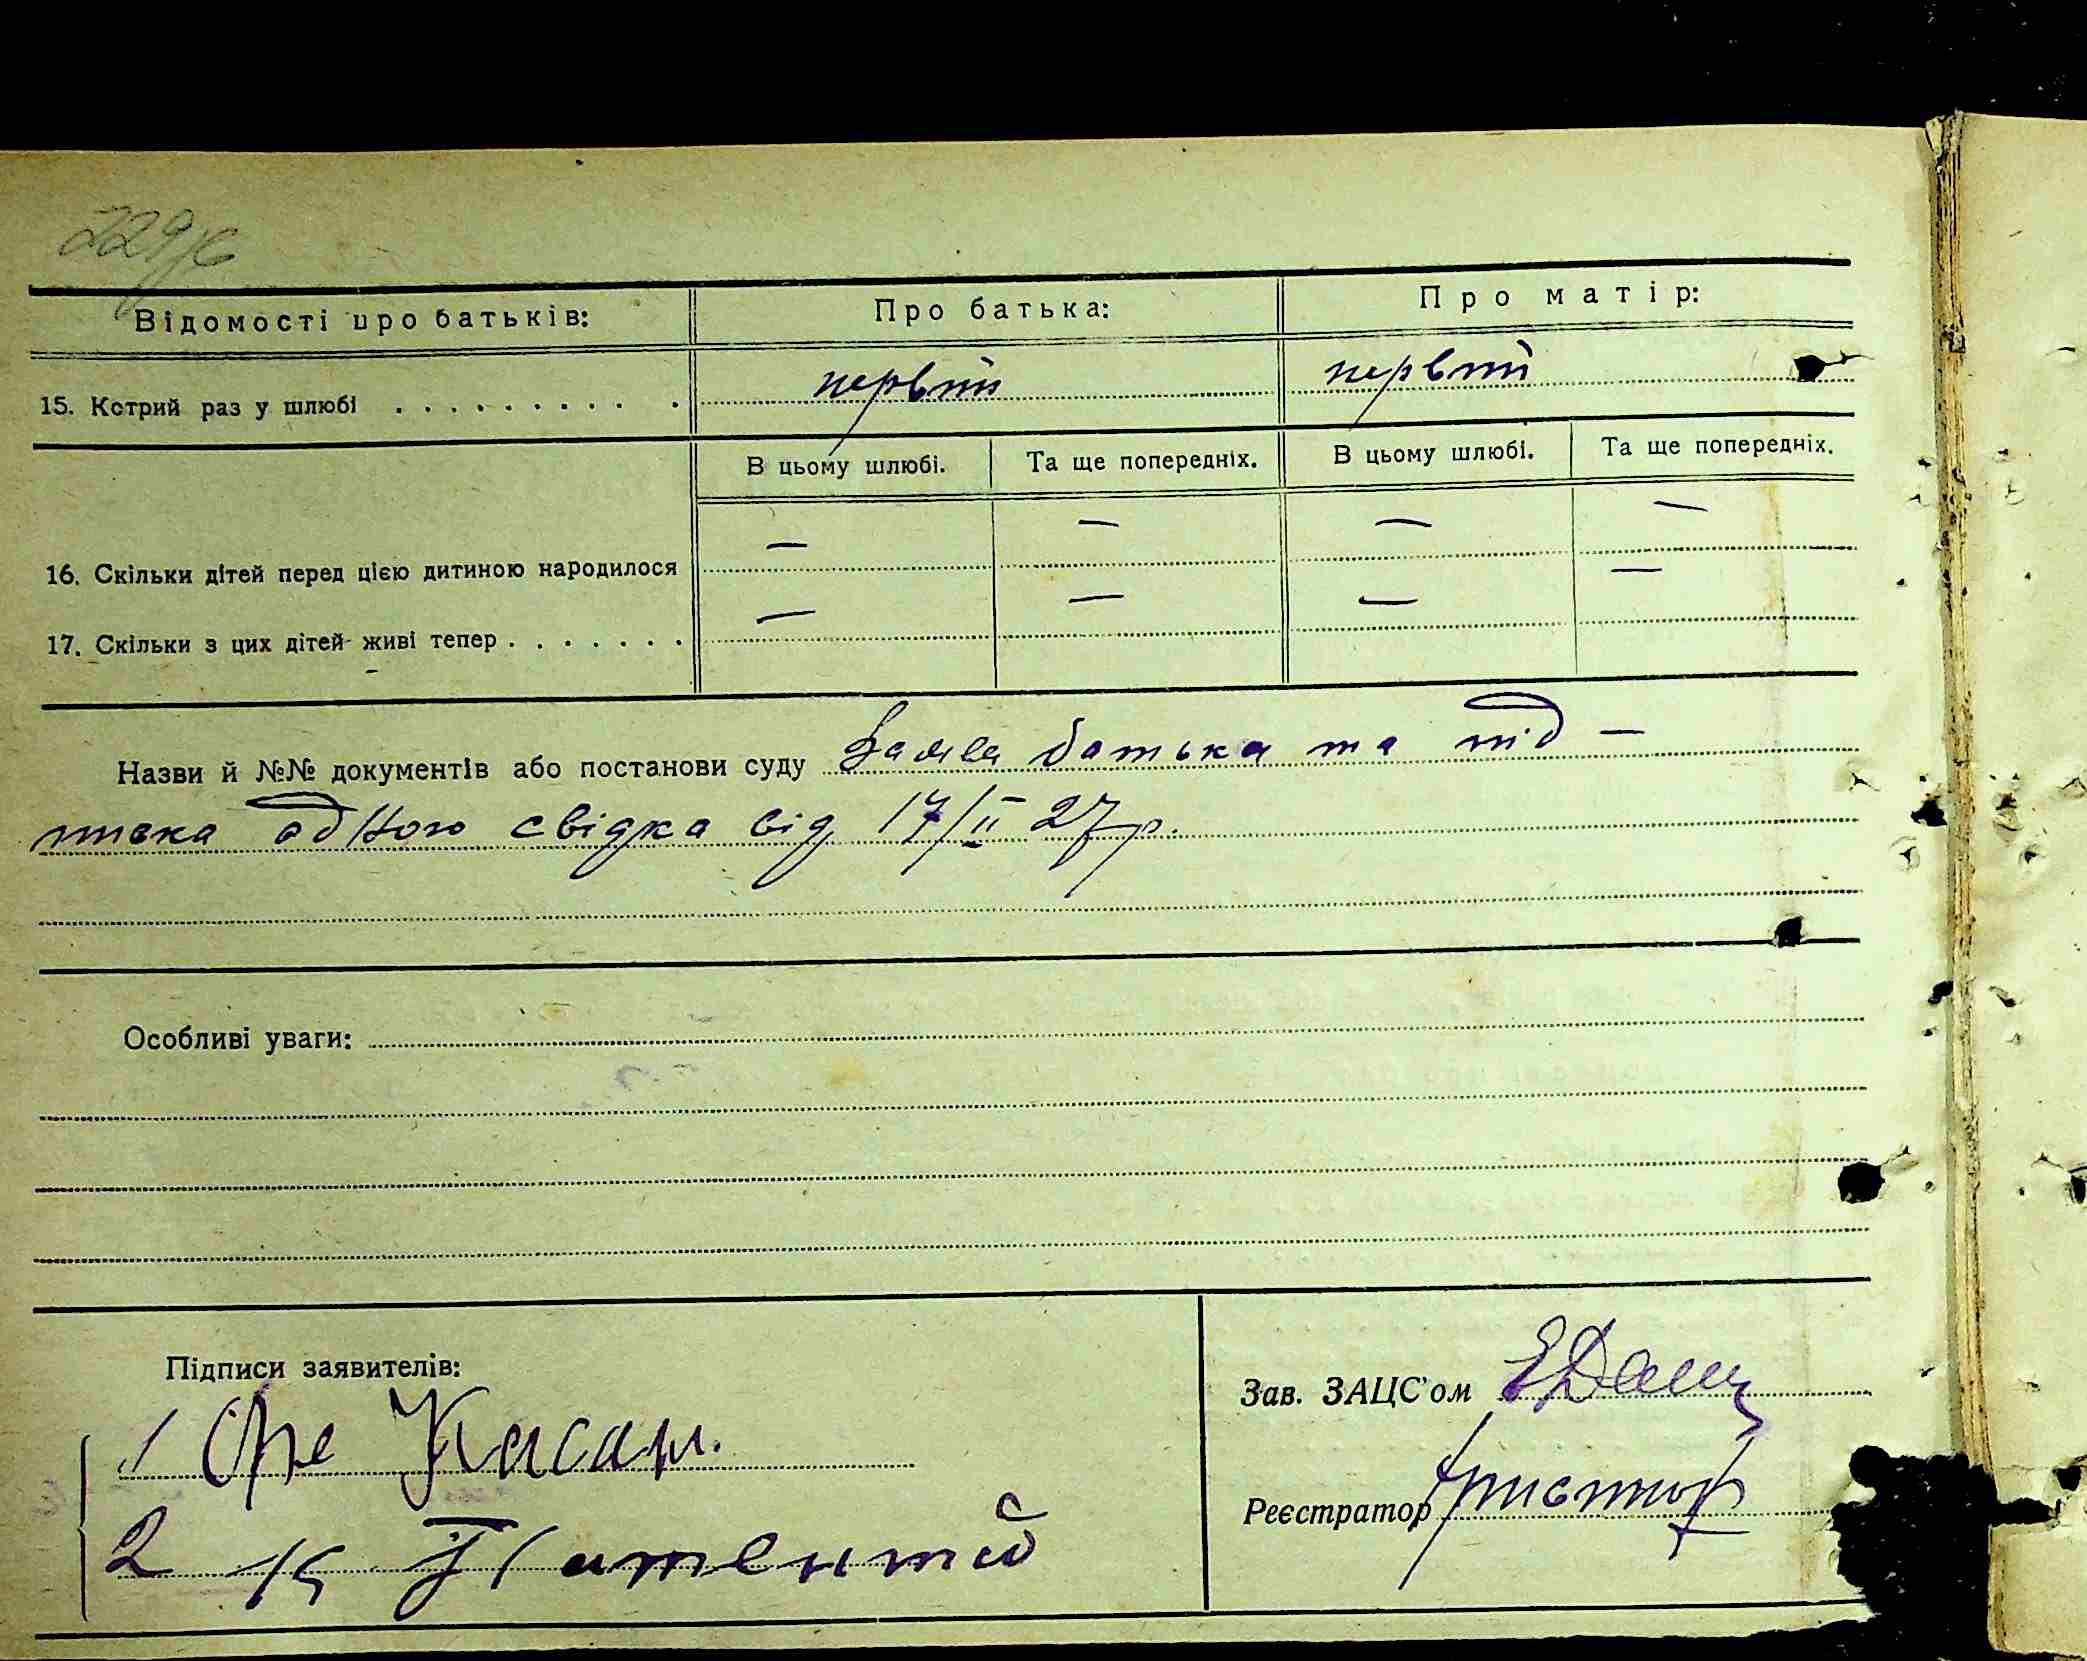 Відомості про батьків: Про батька: Про матір:
15. Котрий раз у шлюбі . . . . . . . . . . первий первий
В цьому шлюбі. Та ще попередніх. В цьому шлюбі. Та ще попередніх.
16. Скільки дітей перед цією дитиною народилося — — — —
17. Скільки з цих дітей живі тепер . . . . . . . — — — —
Назви й №№ документів або постанови суду Заява батька та під-
писка одного свідка від 17/II 27 р.
Особливі уваги:
Підписи заявителів:
Зав. ЗАЦС'ом
1
Реєстратор
2